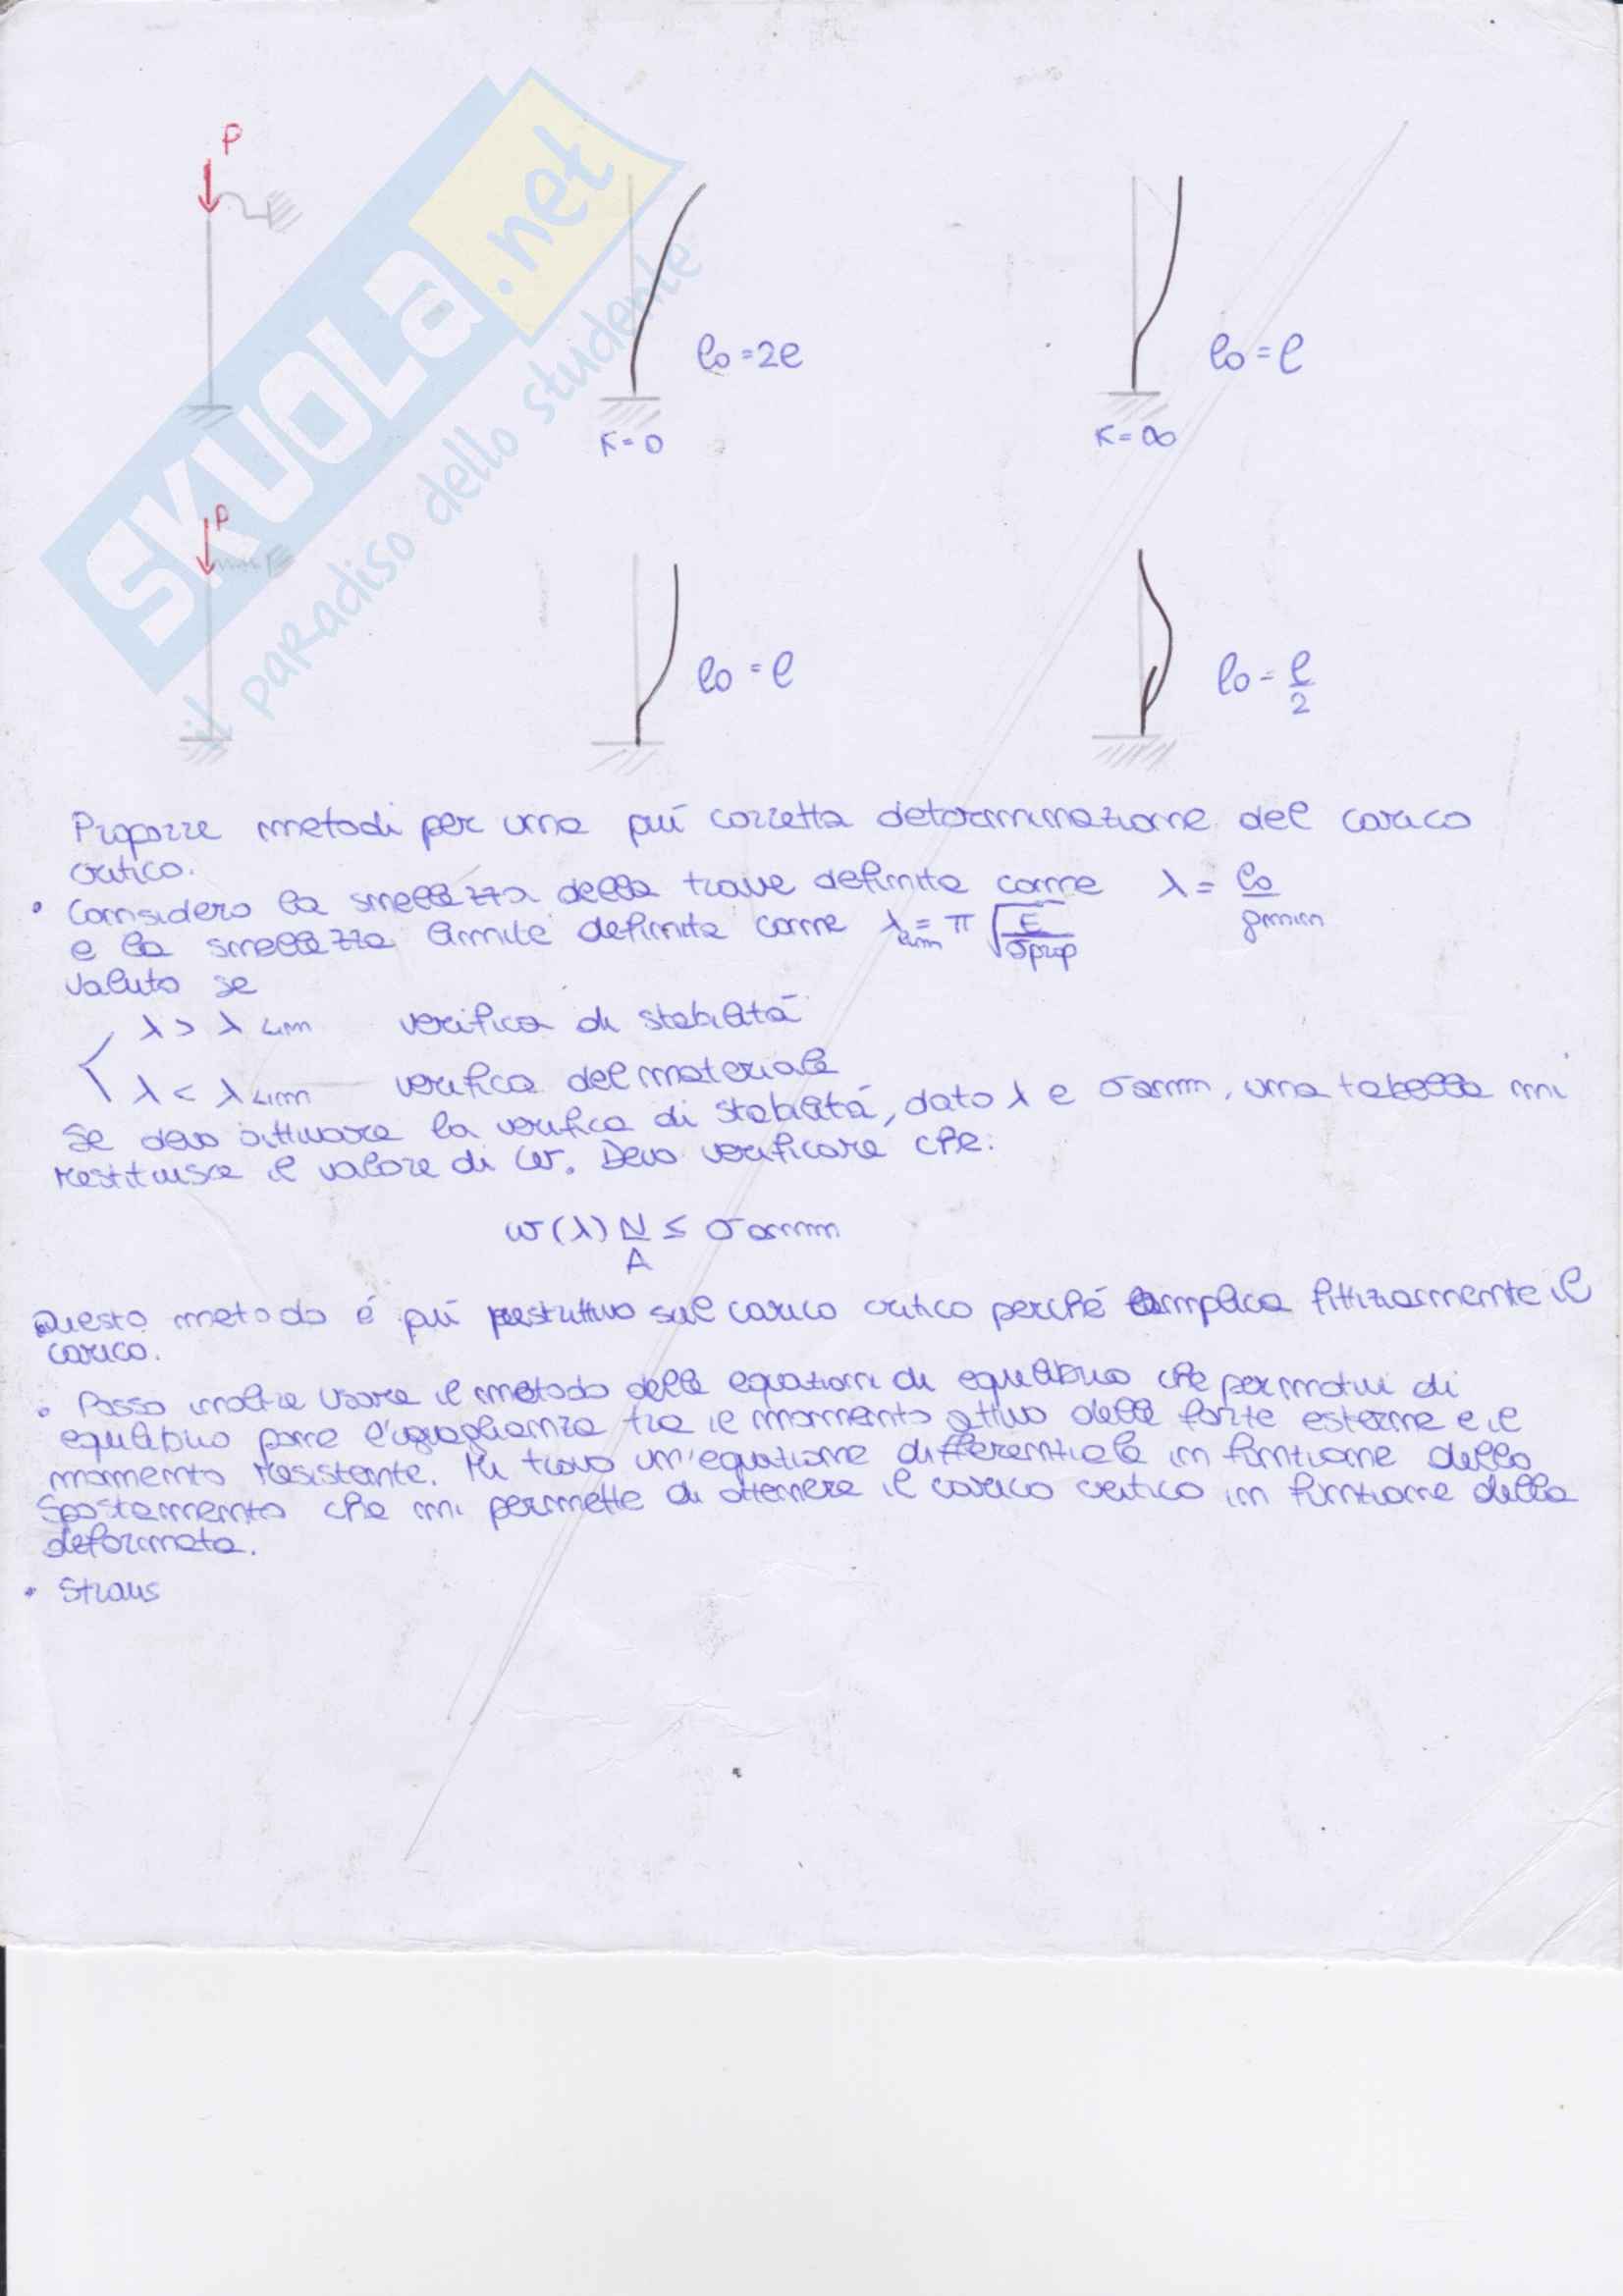 P
l₀ = 2l
K = 0
l₀ = l
K = ∞
P
l₀ = l
l₀ = l/2
SKUOLA.net
il paradiso dello studente
Proporre metodi per una piú corretta determinazione del carico
critico.
• Considero la snellezza della trave definita come λ = l₀/ρmin
e la snellezza limite definita come λlim = π √(E/σprop)
Valuto se
λ > λ LIM verifica di stabilitá
λ < λ LIM verifica del materiale
Se devo attivare la verifica di stabilitá, dato λ e σamm, una tabella mi
restituisce il valore di ω. Devo verificare che:
ω(λ) N/A ≤ σamm
Questo metodo é piú restrittivo sul carico critico perché amplica fittiziamente il
carico.
• Posso inoltre usare il metodo delle equazioni di equilibrio che per motivi di
equilibrio pone l'uguaglianza tra il momento attivo delle forze esterne e il
momento resistente. Mi trovo un'equazione differenziale in funzione dello
spostamento che mi permette di ottenere il carico critico in funzione della
deformata.
• Straus